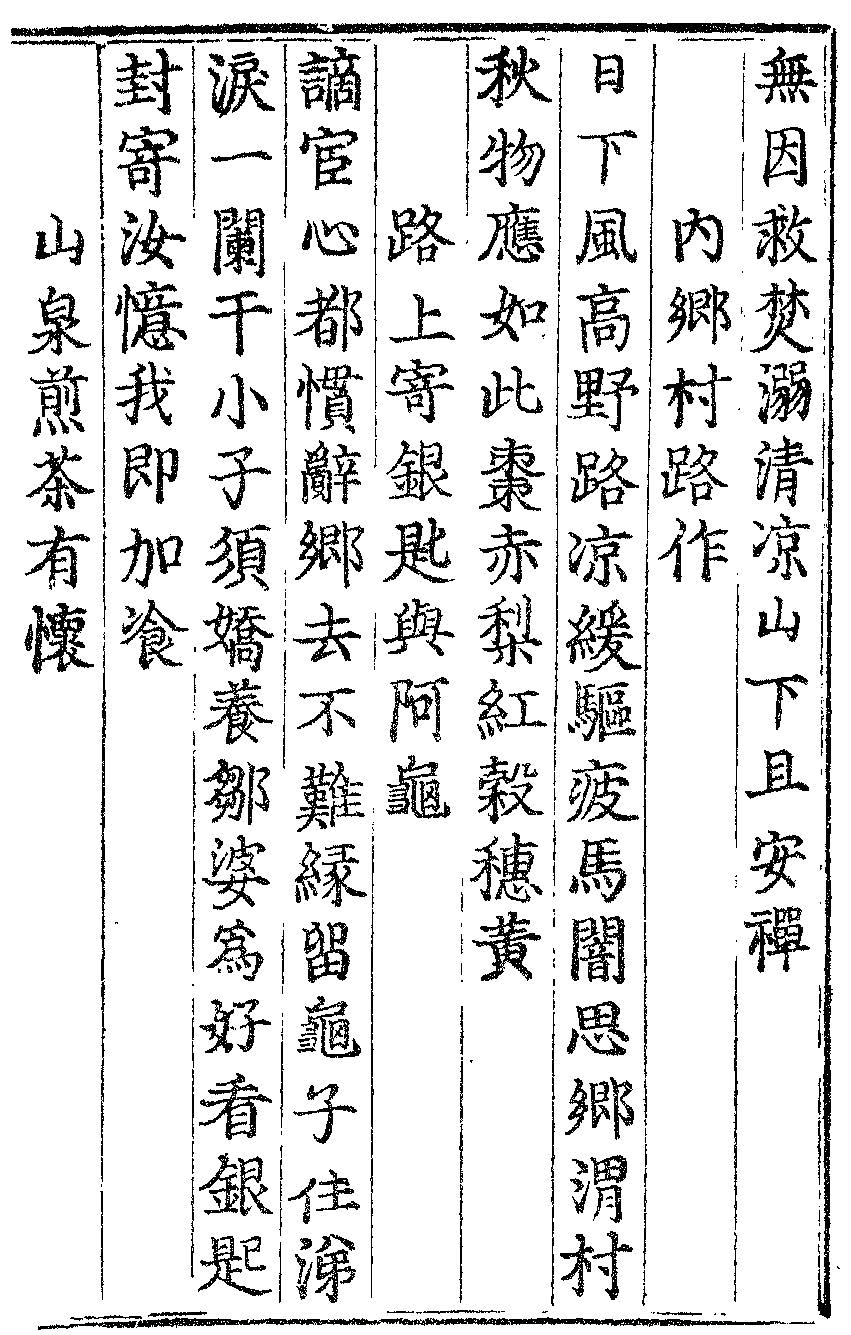 無因救焚溺清凉山下且安禪
内鄉村路作
日下風高野路凉緩驅疲馬闇思鄉渭村
秋物應如此棗赤梨紅穀穗黃
路上寄銀匙與阿龜
謫宦心都慣辭鄉去不難緣留龜子住涕
淚一闌干小子須嬌養鄒婆爲好看銀匙
封寄汝憶我即加飡
山泉煎茶有懷